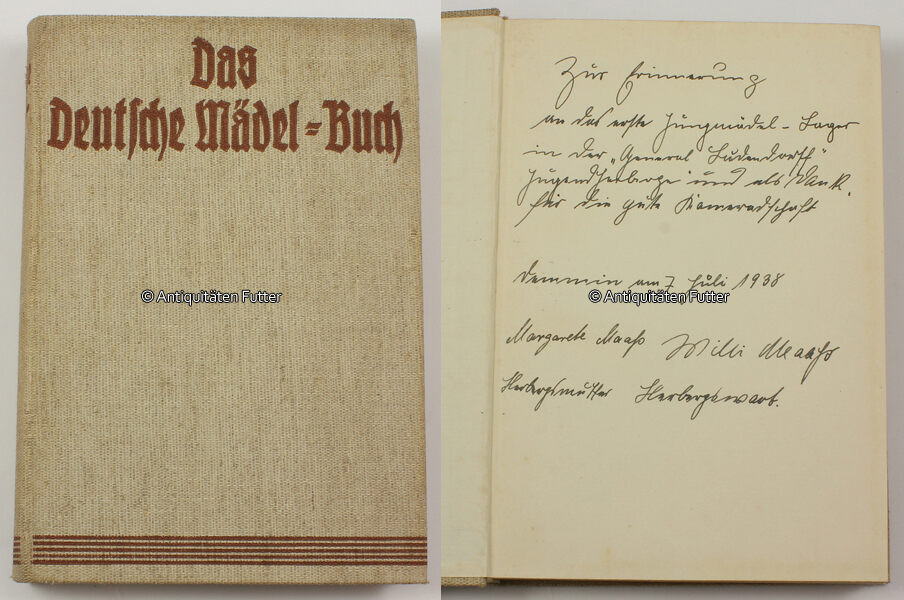 Das
Deutsche Mädel-Buch
© Antiquitäten Futter
Zur Erinnerung
an das erste Jungmädel-Lager
in der „General Ludendorff“
Jugendherberge und als Dank
für die gute Kameradschaft
Demmin am 7 Juli 1938
© Antiquitäten Futter
Margarete Maaß Willi Maaß
Herbergsmutter Herbergswart.